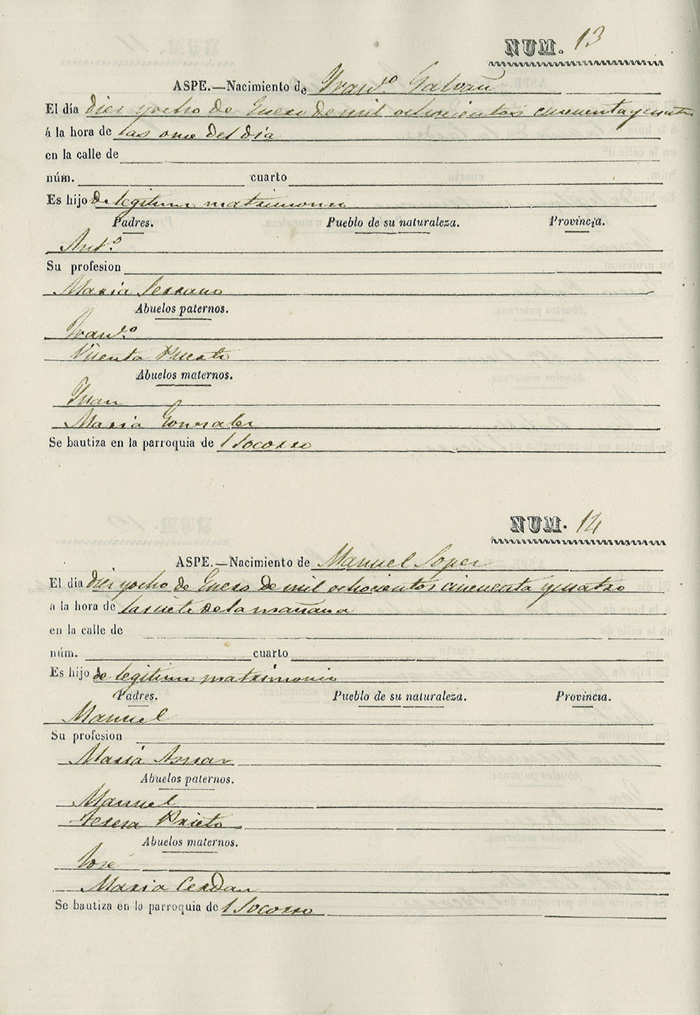 NUM. 13
ASPE.—Nacimiento de Fran.co Galvañ
El día diez y ocho de Enero de mil ochocientos cincuenta y cuatro
á la hora de las once del dia
en la calle de
núm. cuarto
Es hijo de legitimo matrimonio
Padres. Pueblo de su naturaleza. Provincia.
Ant.o
Su profesion
Maria Serrano
Abuelos paternos.
Fran.co
Vicenta
Abuelos maternos.
Juan
Maria Gonzalez
Se bautiza en la parroquia de l Socorro
NUM. 14
ASPE.—Nacimiento de Manuel Lopez
El día diez y ocho de Enero de mil ochocientos cincuenta y cuatro
a la hora de las siete de la mañana
en la calle de
núm. cuarto
Es hijo de legitimo matrimonio
Padres. Pueblo de su naturaleza. Provincia.
Manuel
Su profesion
Maria Aznar
Abuelos paternos.
Manuel
Teresa Prieto
Abuelos maternos.
José
Maria Cerdan
Se bautiza en la parroquia de l Socorro